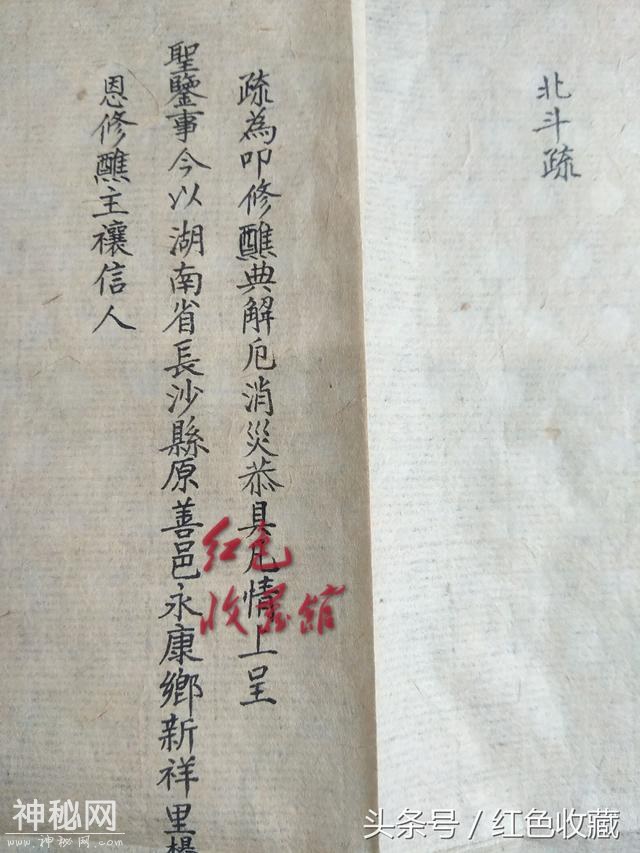 北斗疏
疏為叩修醮典解厄消災恭具凡情上呈
聖鑒事今以湖南省長沙縣原善邑永康鄉新祥里楊
恩修醮主禳信人
红色
收藏馆
神秘网
www.神秘网.com
头条号 / 红色收藏